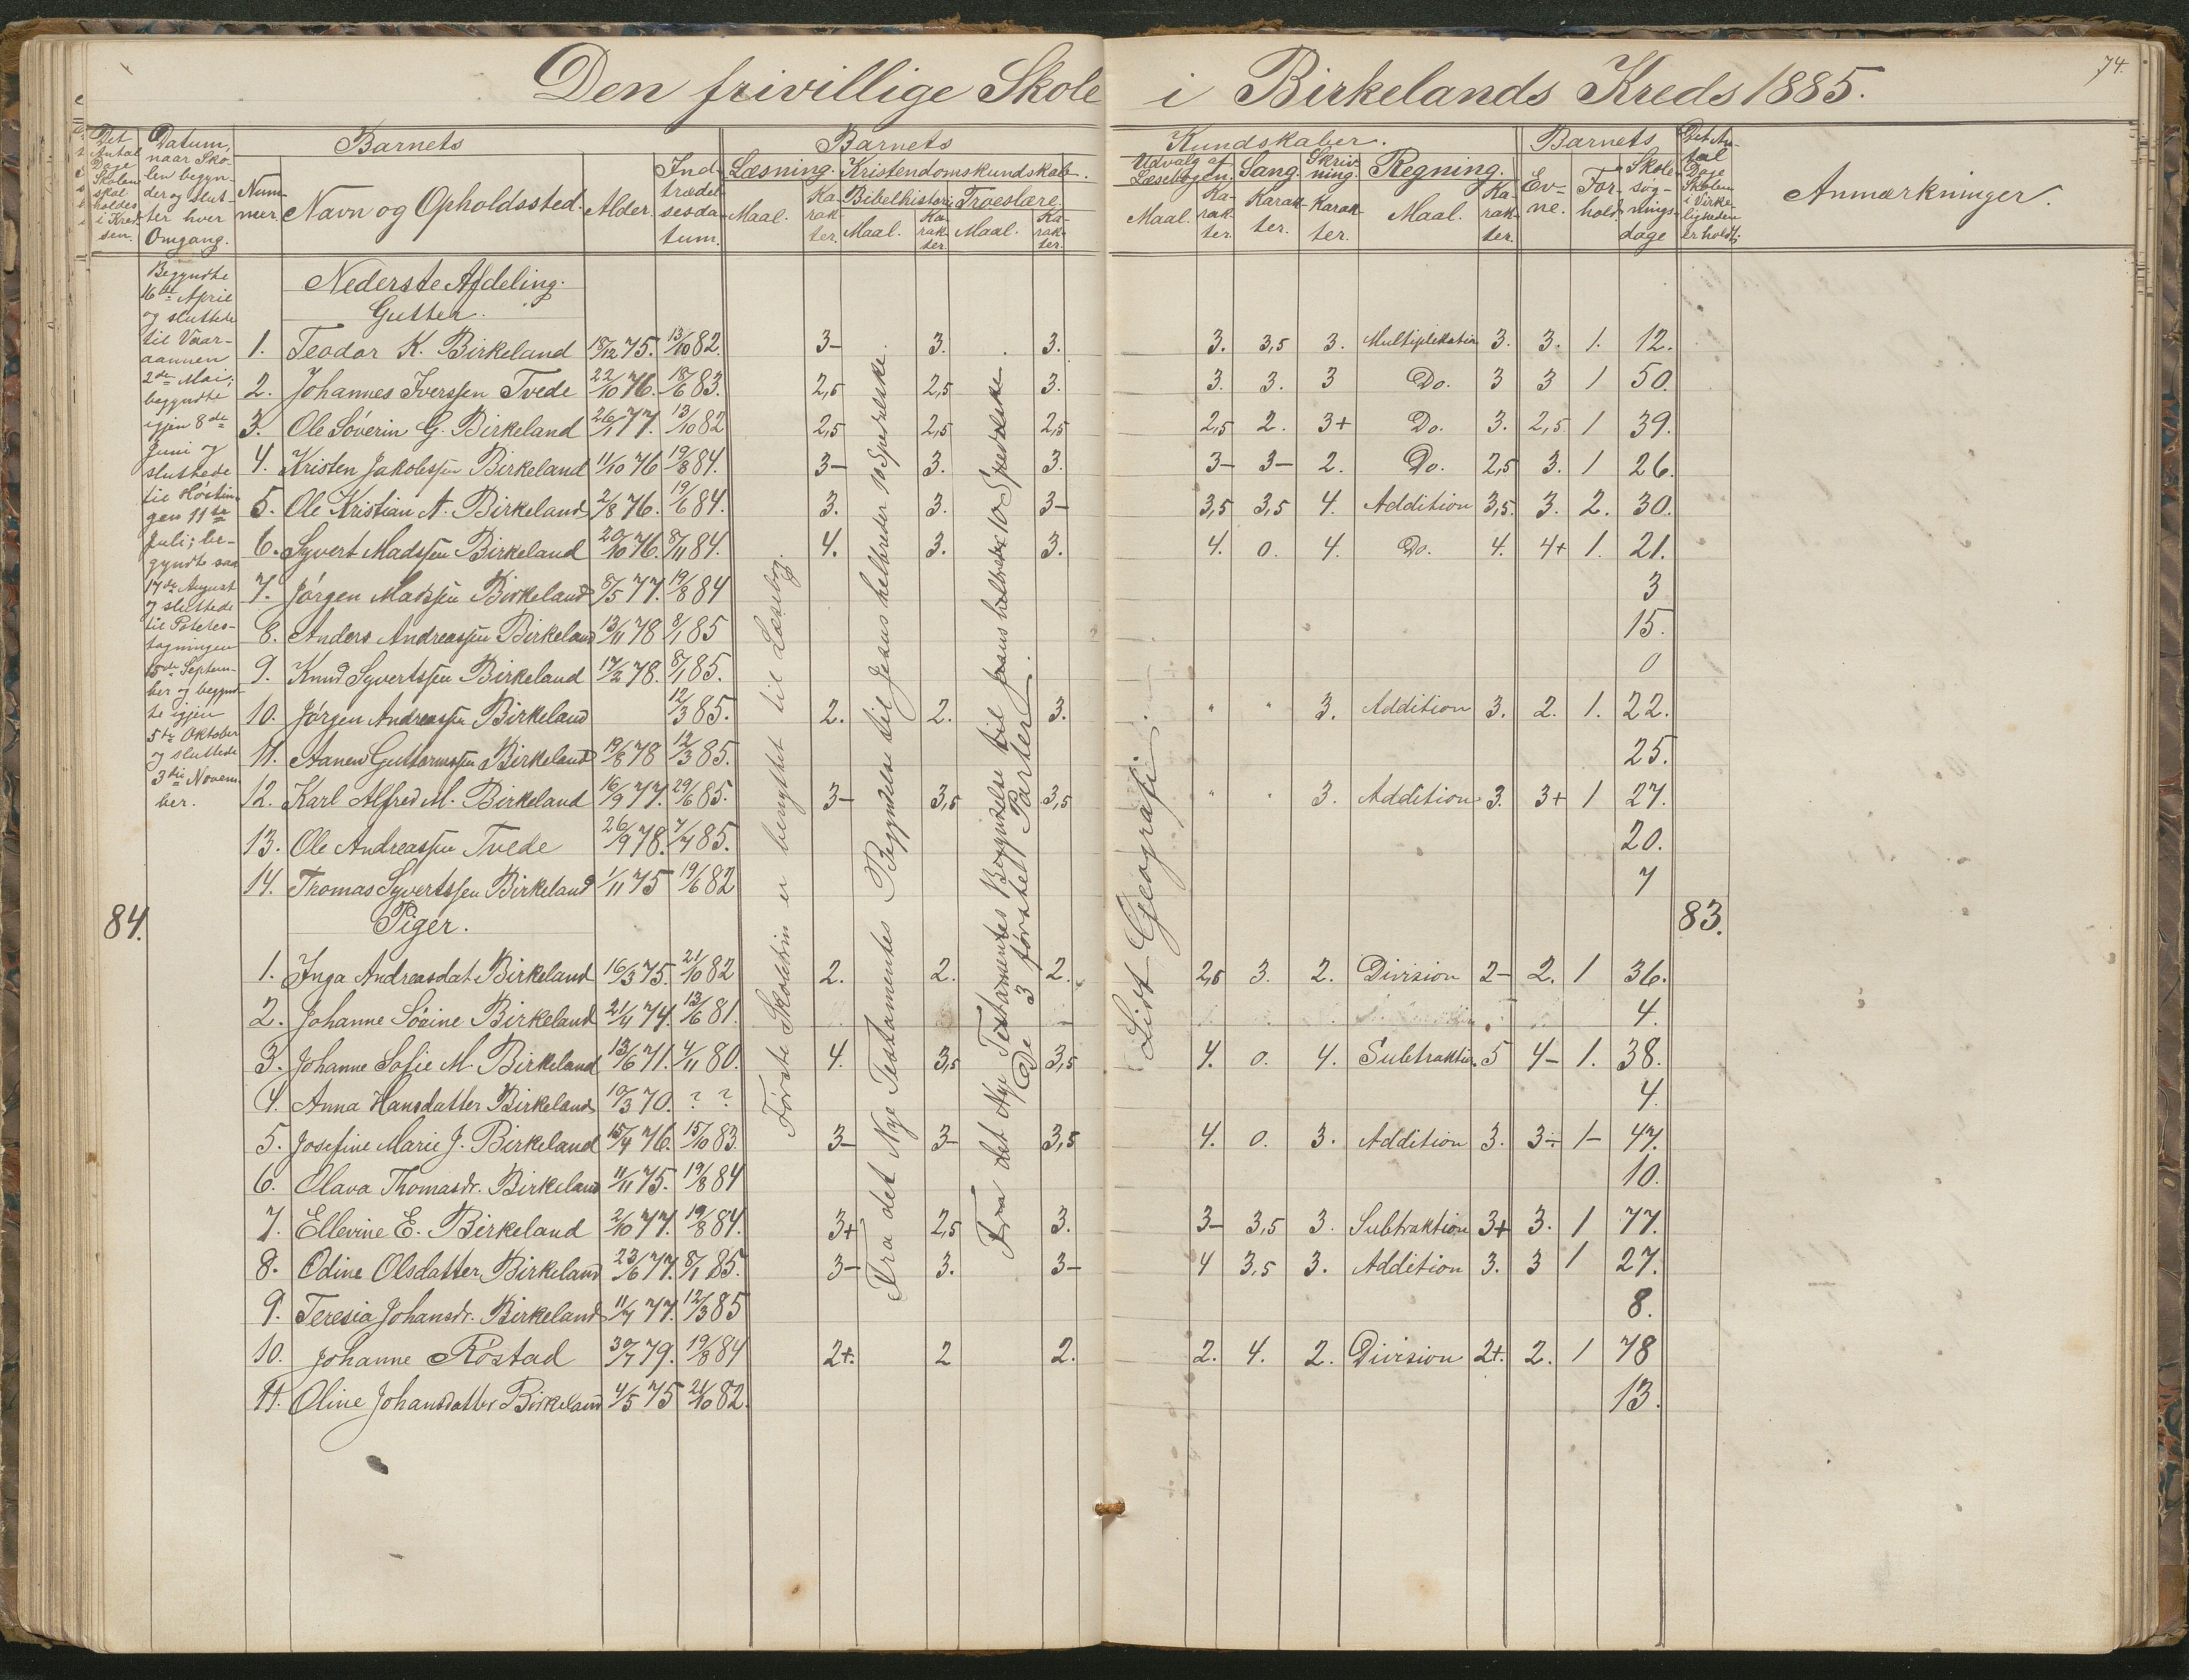 Den frivillige Skole i Birkelands Kreds 1885.
74.
Det Antal Dage Skolen skal holdes i Kredsen.
Datum, naar Skolen begynder og slutter hver Omgang.
Barnets
Nummer.
Navn og Opholdssted.
Alder.
Indtrædelsesdatum.
Barnets
Læsning.
Maal.
Karakter.
Kristendomskundskab.
Bibelhistorie
Maal.
Karakter.
Troeslære
Maal.
Karakter.
Kundskaber.
Udvalg af Læsebogen.
Maal.
Karakter.
Sang.
Karakter.
Skrivning.
Karakter.
Regning.
Maal.
Karakter.
Barnets
Evne.
Forhold.
Skolesøgningsdage
Det Antal Dage Skolen i Virkeligheden er holdt;
Anmærkninger.
Begyndte
16de April
og sluttede
til Vaar-
aannen
2den Mai;
begyndte
igjen 8de
Juni og
sluttede
til Høstin-
gen 11te
Juli; be-
gyndte saa
17de August
og sluttede
til Potetes-
tagningen
15de Septem-
ber og begynd-
te igjen
5te Oktober
og sluttede
3die Novem-
ber.
84.
Nederste Afdeling.
Gutter.
1. Teodor K. Birkeland 18/12 75. 13/10 82. 3- 3. 3. 3. 3,5 3. Multiplikation 3. 3. 1. 12.
2. Johannes Iverssen Tvede 22/10 76. 18/6 83. 2,5 2,5 3. 3. 3. 3 Do. 3 3 1 50.
3. Ole Søverin G. Birkeland 26/1 77. 13/10 82 2,5 2,5 2,5 2,5 2. 3+ Do. 3. 2,5 1 39.
4. Kristen Jakobssen Birkeland 11/10 76 19/8 84. 3- 3. 3. 3- 3- 2. Do. 2,5 3. 1 26.
5. Ole Kristian A. Birkeland 2/8 76. 19/6 84. 3. 3. 3- 3,5 3,5 4. Addition 3,5. 3. 2. 30.
6. Syvert Madssen Birkeland 20/10 76. 8/11 84. 4. 3. 3. 4. 0. 4. Do. 4. 4+ 1. 21.
7. Jørgen Madssen Birkeland 8/5 77. 19/8 84 3
8. Anders Andreassen Birkeland 13/11 78 8/1 85 15.
9. Knud Syvertssen Birkeland 17/2 78. 8/1 85. 0
10. Jørgen Andreassen Birkeland 12/3 85. 2. 2. 3. " " 3. Addition 3. 2. 1. 22.
11. Aanen Guttormssen Birkeland 19/8 78 12/3 85. 25.
12. Karl Alfred M. Birkeland 16/9 77. 29/6 85. 3- 3,5 3,5 " " 3. Addition 3. 3+ 1 27.
13. Ole Andreassen Tvede 26/9 78. 7/7 85. 20.
14. Thomas Syvertssen Birkeland 1/11 75 19/6 82 7
Piger.
83.
1. Inga Andreasdat. Birkeland 16/3 75. 21/10 82 2. 2. 2. 2,5 3. 2. Division 2- 2. 1 36.
2. Johanne Sørine Birkeland 21/4 74. 13/6 81. 4.
3. Johanne Sofie M. Birkeland 13/6 71. 4/11 80. 4. 3,5 3,5 4. 0. 4. Subtraktion. 5 4- 1. 38.
4. Anna Hansdatter Birkeland 10/3 70. ? ? 4.
5. Josefine Marie J. Birkeland 15/4 76. 15/10 83. 3- 3- 3,5 4. 0. 3. Addition 3. 3- 1- 47.
6. Olava Thomasdr. Birkeland 11/11 75. 19/8 84 10.
7. Ellevine E. Birkeland 2/10 77. 19/8 84. 3+ 2,5 3. 3- 3,5 3. Subtraktion 3+ 3. 1 77.
8. Odine Olsdatter Birkeland 23/6 77. 8/1 85. 3- 3. 3- 4 3,5 3. Addition 3. 3 1 27.
9. Teresia Johansdr. Birkeland 11/7 77. 12/3 85 8.
10. Johanne Røstad 30/7 79. 19/8 84 2+. 2 2. 2. 4. 2. Division 2+. 2. 1 78
11. Oline Johansdatter Birkeland 4/5 75 21/10 82. 13.
Første Skoletrin er benyttet til Læsebog
Fra det Nye Testamentes Begyndelse til Jesus helbreder 10 Spedalske.
Fra det Nye Testamentes Begyndelse til Jesus helbreder 10 Spedalske.
(De 3 første Parter).
Lidt Geografi.